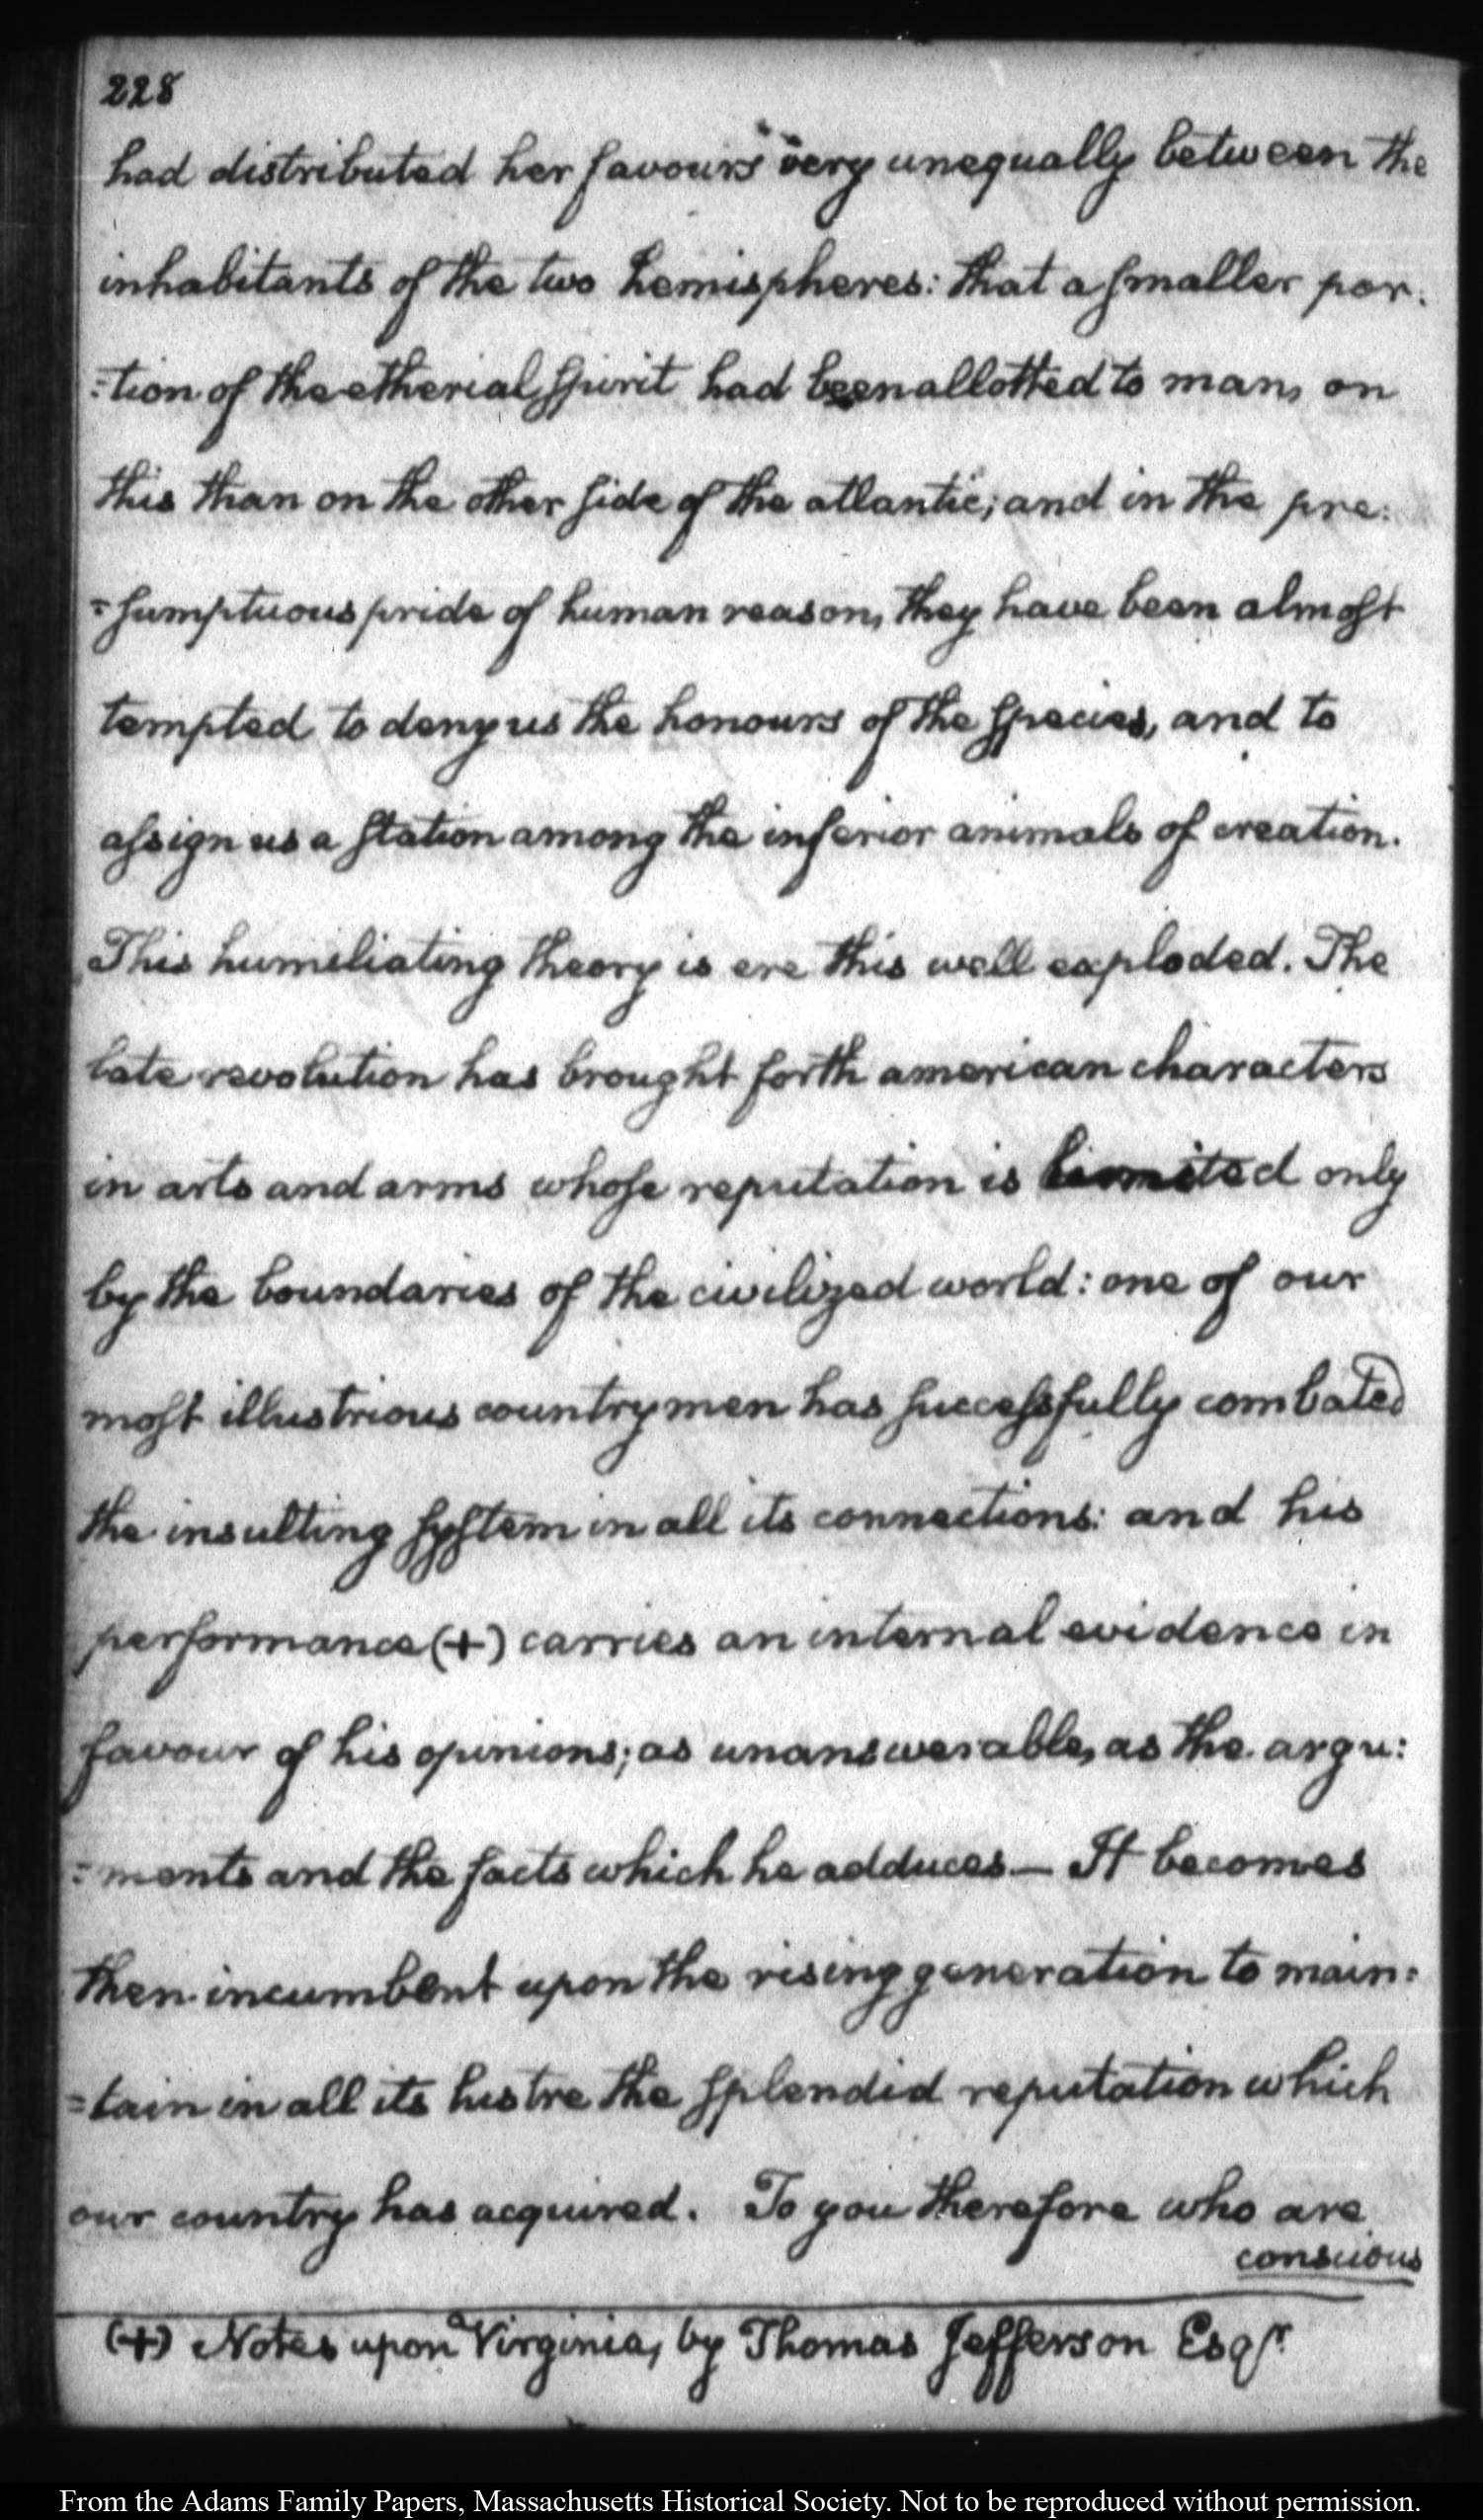 228
had distributed her favours very unequally between the
inhabitants of the two hemispheres: that a smaller por:
:tion of the etherial spirit had been allotted to man, on
this than on the other side of the atlantic; and in the pre:
:sumptuous pride of human reason, they have been almost
tempted to deny us the honours of the species, and to
assign us a station among the inferior animals of creation.
This humiliating theory is ere this well exploded. The
late revolution has brought forth american characters
in arts and arms whose reputation is limited only
by the boundaries of the civilized world: one of our
most illustrious countrymen has successfully combated
the insulting system in all its connections: and his
performance (+) carries an internal evidence in
favour of his opinions; as unanswerable, as the argu:
:ments and the facts which he adduces — It becomes
then incumbent upon the rising generation to main:
:tain in all its lustre the splendid reputation which
our country has acquired. To you therefore who are
conscious
(+) Notes upon Virginia, by Thomas Jefferson Esqr
From the Adams Family Papers, Massachusetts Historical Society. Not to be reproduced without permission.